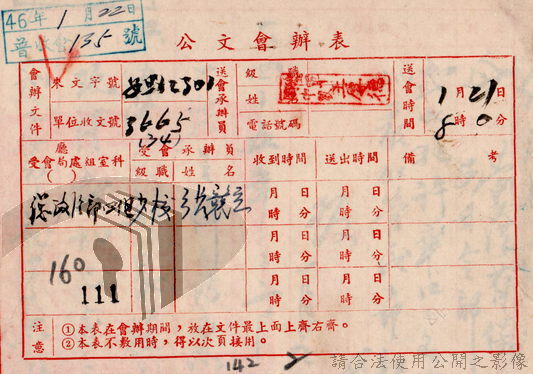 46年1月22日
普收會135號
公文會辦表
會辦文件
來文字號
單位收文號 3665
(34)
送會承辦員
級職
姓名
電話號碼
送會時間
1月21日
8時0分
廳
受會局處組室科
( )
受會承辦員
級職 姓名
收到時間
送出時間
備考
月日
時分
月日
時分
月日
時分
月日
時分
月日
時分
月日
時分
160
111
注意
①本表在會辦期間,放在文件最上面上齊右齊。
②本表不敷用時,得以次頁接用。
142
請合法使用公開之影像